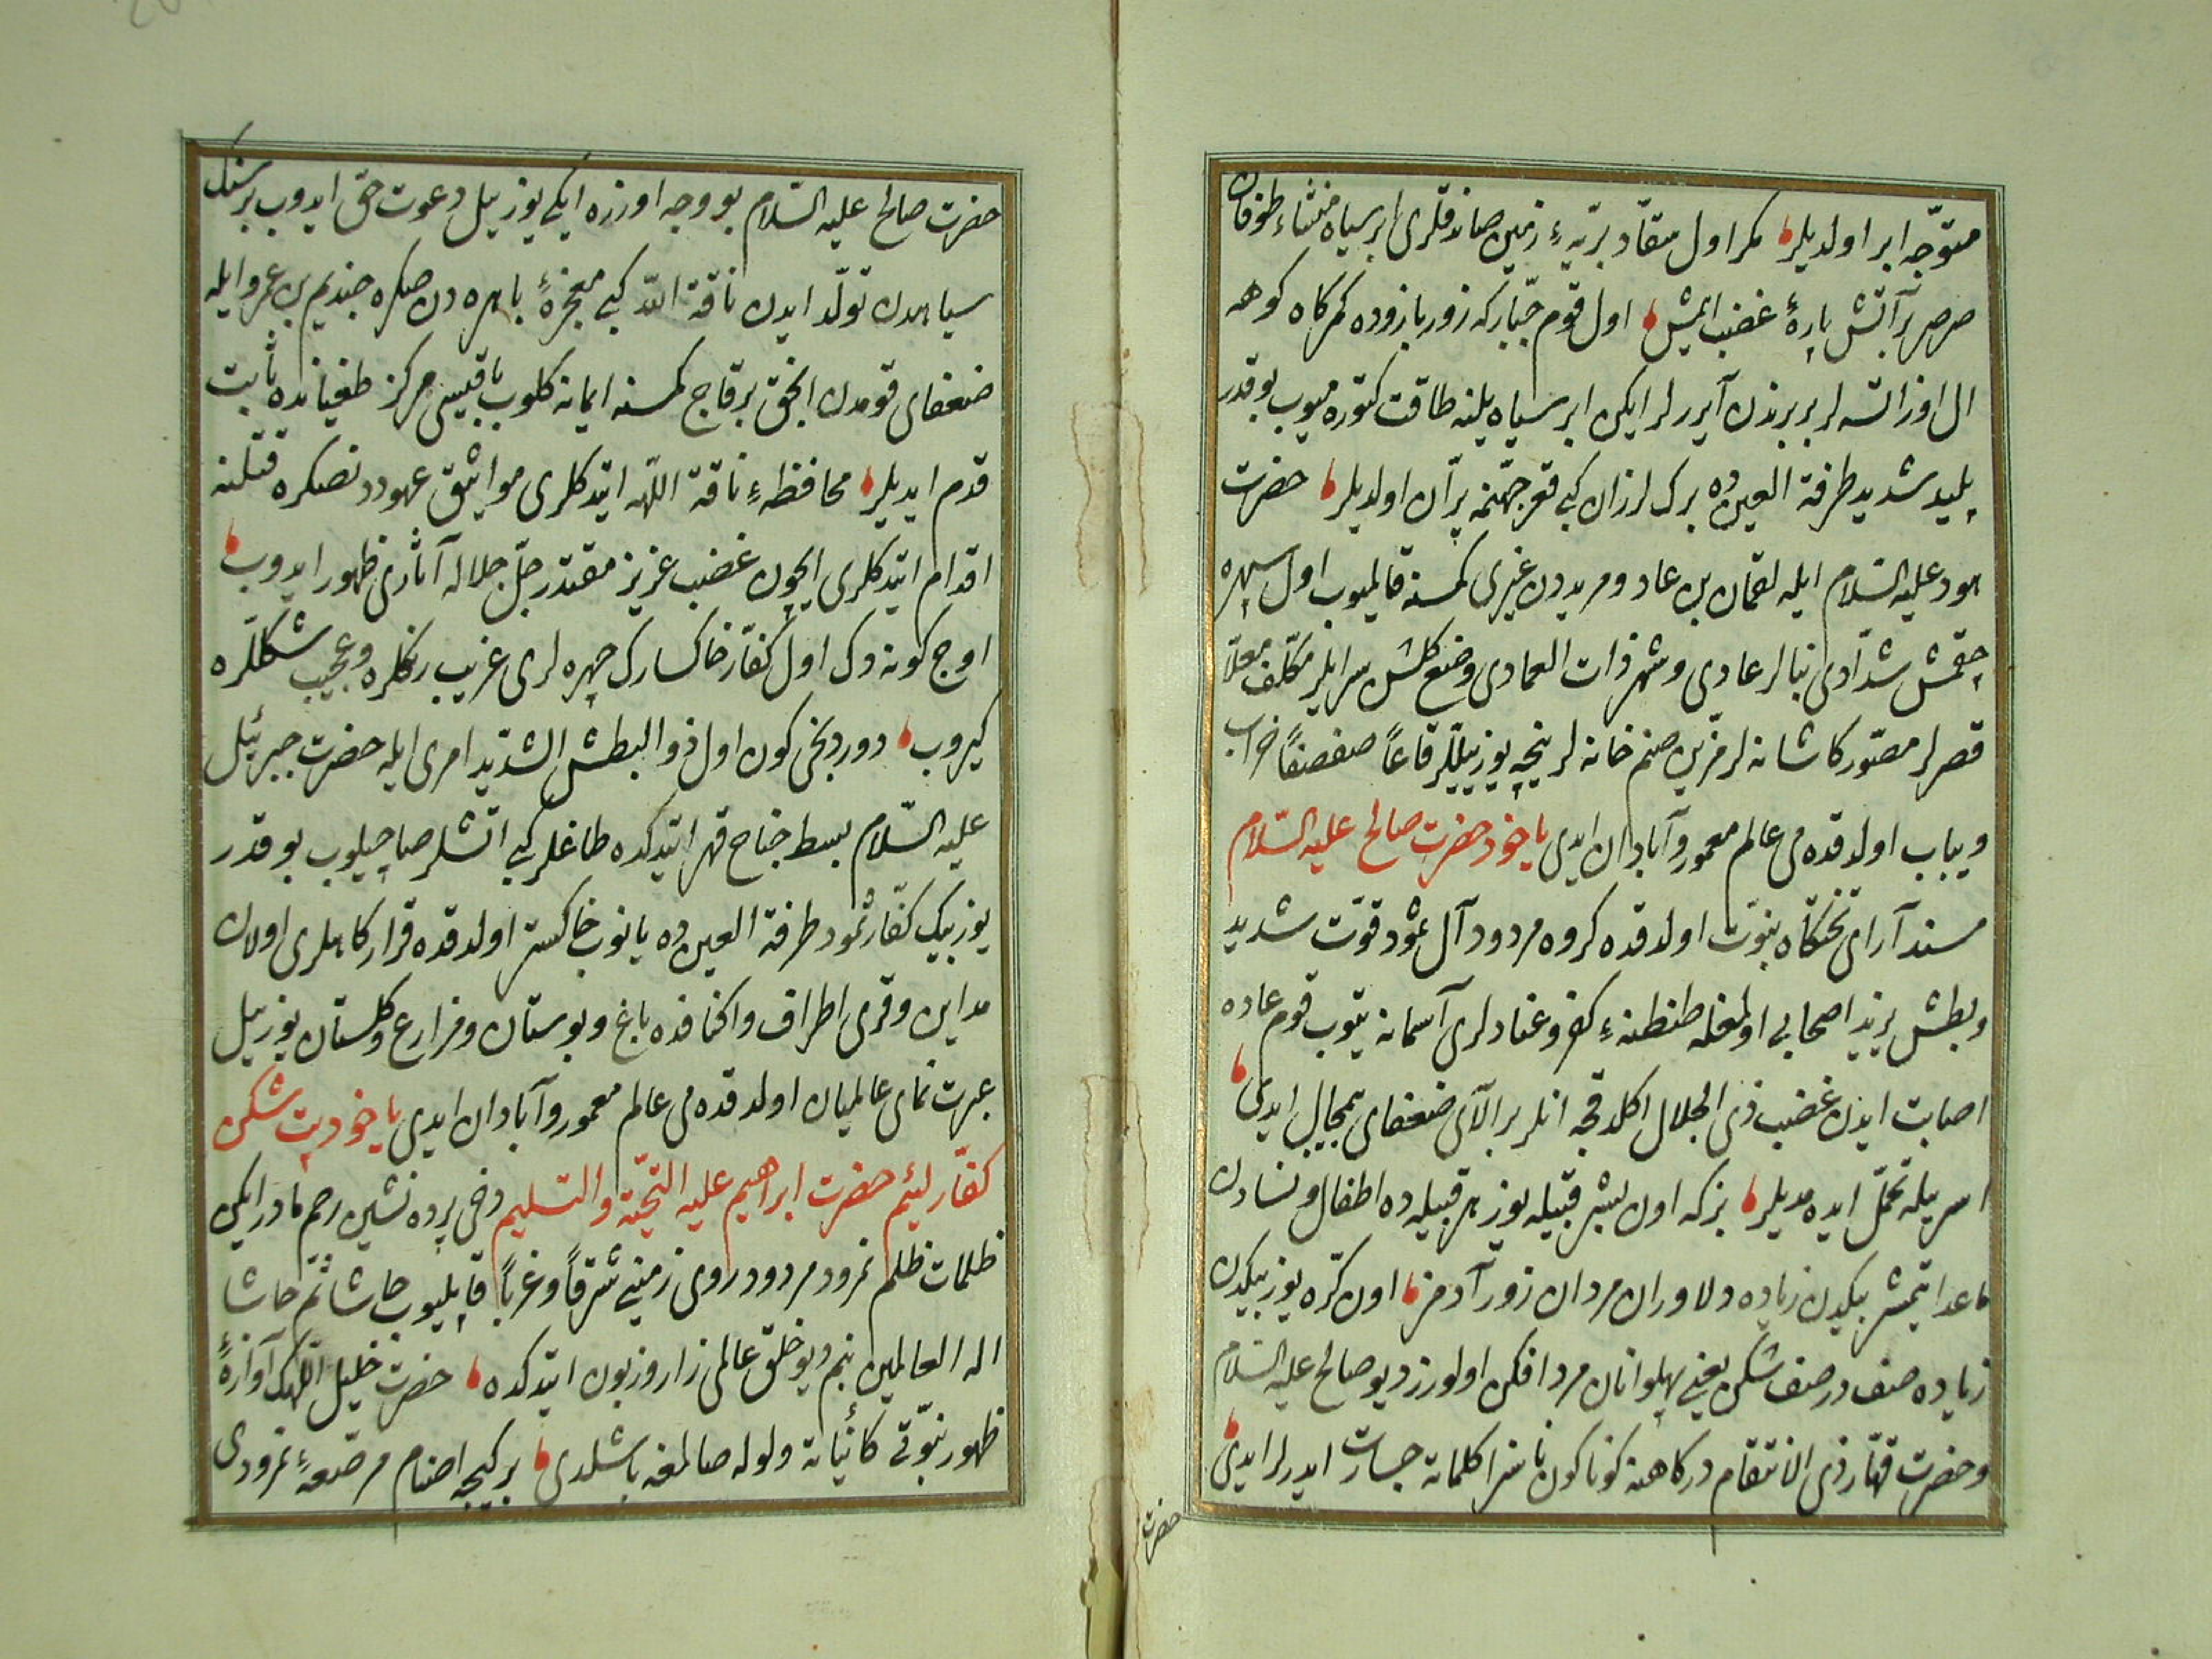 متوجّه ابر اولدیلر مکر اول سقّاد بریّهٔ زمین صاندقلری ابر سیاه منشاء طوفان
صرصر پر آتش پارهٔ غضب ایمش اول قوم جبّار که زور بازوده کمرکاه کوهه
ال اوزاتسه لر بربرندن آیررلر ایکن ابر سیاه یلنه طاقت کتوره میوب بوقدر
پلید شدید طرفة العین ده برک لرزان کبی قعر جهنمه پرّان اولدیلر حضرت
هود علیه السّلام ایله لقمان بن عاد و مریددن غیری کمسنه قالمیوب اول سپهره
چقمش شدّادی بنالر عادی و شهر ذات العمادی وضع کلشن سرایلر مکلّف معلّا
قصرلر مصوّر کاشانه لر مزیّن صنم خانه لر نیچه یوز ییللر قاعاً صفصفاً خراب
و یباب اولدقده می عالم معمور و آبادان ایدی یاخود حضرت صالح علیه السّلام
مسند آرای تختکاه نبوّت اولدقده کروه مردود آل ثمود قوّت شدید
و بطش یزید اصحابی اولمغله طنطنهٔ کفر و عنادلری آسمانه یتوب قوم عاده
اصابت ایدن غضب ذی الجلال اکلدقجه انلر بر الآی ضعفای بیمجال ایدی
اسر ییله تحمّل ایده مدیلر بزکه اون بشر قبیله یوز هر قبیله ده اطفال و نسادن
ماعدا یتمشر بیکدن زیاده دلاوران مردان زور آدمز اون کرّه یوز بیکدن
زیاده صف در صف شکن یعنی پهلوانان مرد افکن اولورز دیو صالح علیه السّلام
و حضرت قهّار ذی الانتقام درکاهنه کوناکون ناسزا کلماته جسارت ایدرلر ایدی
حضرت
حضرت صالح علیه السّلام بو وجه اوزره ایکی یوز ییل دعوت حق ایدوب بر سنک
سیاهدن تولّد ایدن ناقة اللّه کبی معجزهٔ باهره دن صکره جندیم بن عمرو ایله
ضعفای قومدن انجق بر قاج کمسنه ایمانه کلوب باقیسی مرکز طغیانده ثابت
قدم ایدیلر محافظهٔ ناقة اللّهه ایتدکلری مواثیق عهوددنصکره قتلنه
اقدام ایتدکلری ایچون غضب عزیز مقتدر جلّ جلاله آثاری ظهور ایدوب
اوج کونه دک اول کفّار خاکسارک چهره لری غریب رنکلره و عجیب شکللره
کیروب دوردنجی کون اول ذو البطش الشدید امری ایله حضرت جبرئیل
علیه السّلام بسط جناح قهر ایتدکده طاغلر کبی آتشلر صاچیلوب بو قدر
یوز بیک کفّار ثمود طرفة العین ده یانوب خاکستر اولدقده قرارکاهلری اولان
مداین و قری اطراف و اکنافنده باغ و بوستان و مزارع و کلستان یوز ییل
عبرت نمای عالمیان اولدقده می عالم معمور و آبادان ایدی یاخود بت شکن
کفّار لئیم حضرت ابراهیم علیه التحیّة والتسلیم دخی پرده نشین رحم مادر ایکن
ظلمات ظلم نمرود مردود روی زمینی شرقاً و غرباً قاپلیوب حاشا ثمّ حاشا
اله العالمین بنم دیو خلق عالمی زار و زبون ایتدکده حضرت خلیل اللّهک آوازهٔ
ظهور نبوّتی کائناته ولوله صالمغه باشلدی بر کیجه اصنام مرصّعهٔ نمرودی